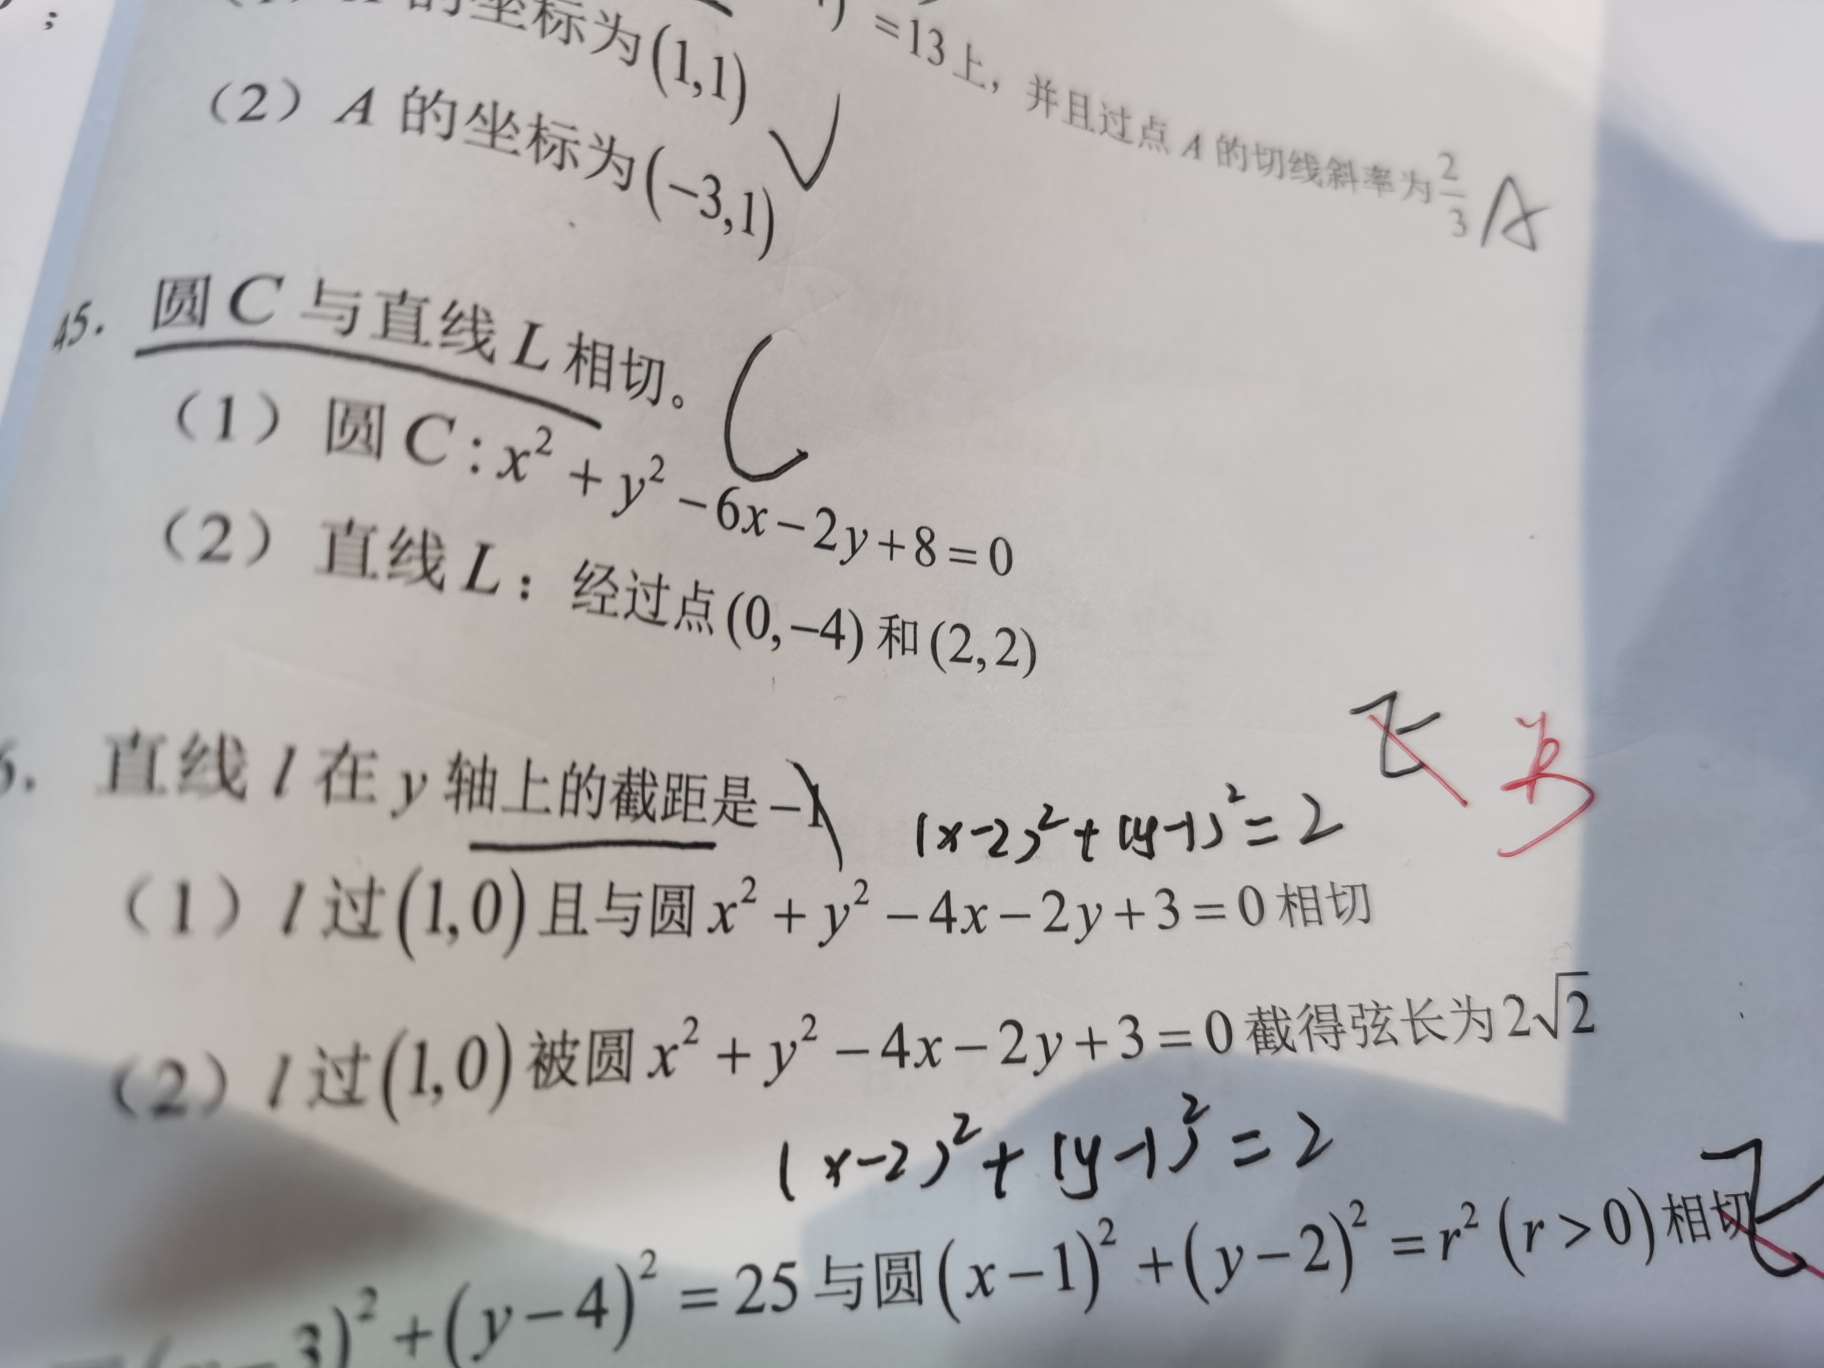 的坐标为(1,1)
=13上，并且过点 A 的切线斜率为2/3 A
（2）A 的坐标为(−3,1)
45. 圆 C 与直线 L 相切。 C
（1）圆 C : x² + y² − 6x − 2y + 8 = 0
（2）直线 L：经过点(0,−4)和(2,2)
6. 直线 l 在 y 轴上的截距是 −1
(x−2)² + (y−1)² = 2
（1）l 过(1,0)且与圆 x² + y² − 4x − 2y + 3 = 0 相切
（2）l 过(1,0)被圆 x² + y² − 4x − 2y + 3 = 0 截得弦长为 2√2
(x−2)² + (y−1)² = 2
3)² + (y−4)² = 25 与圆 (x−1)² + (y−2)² = r² (r > 0) 相切